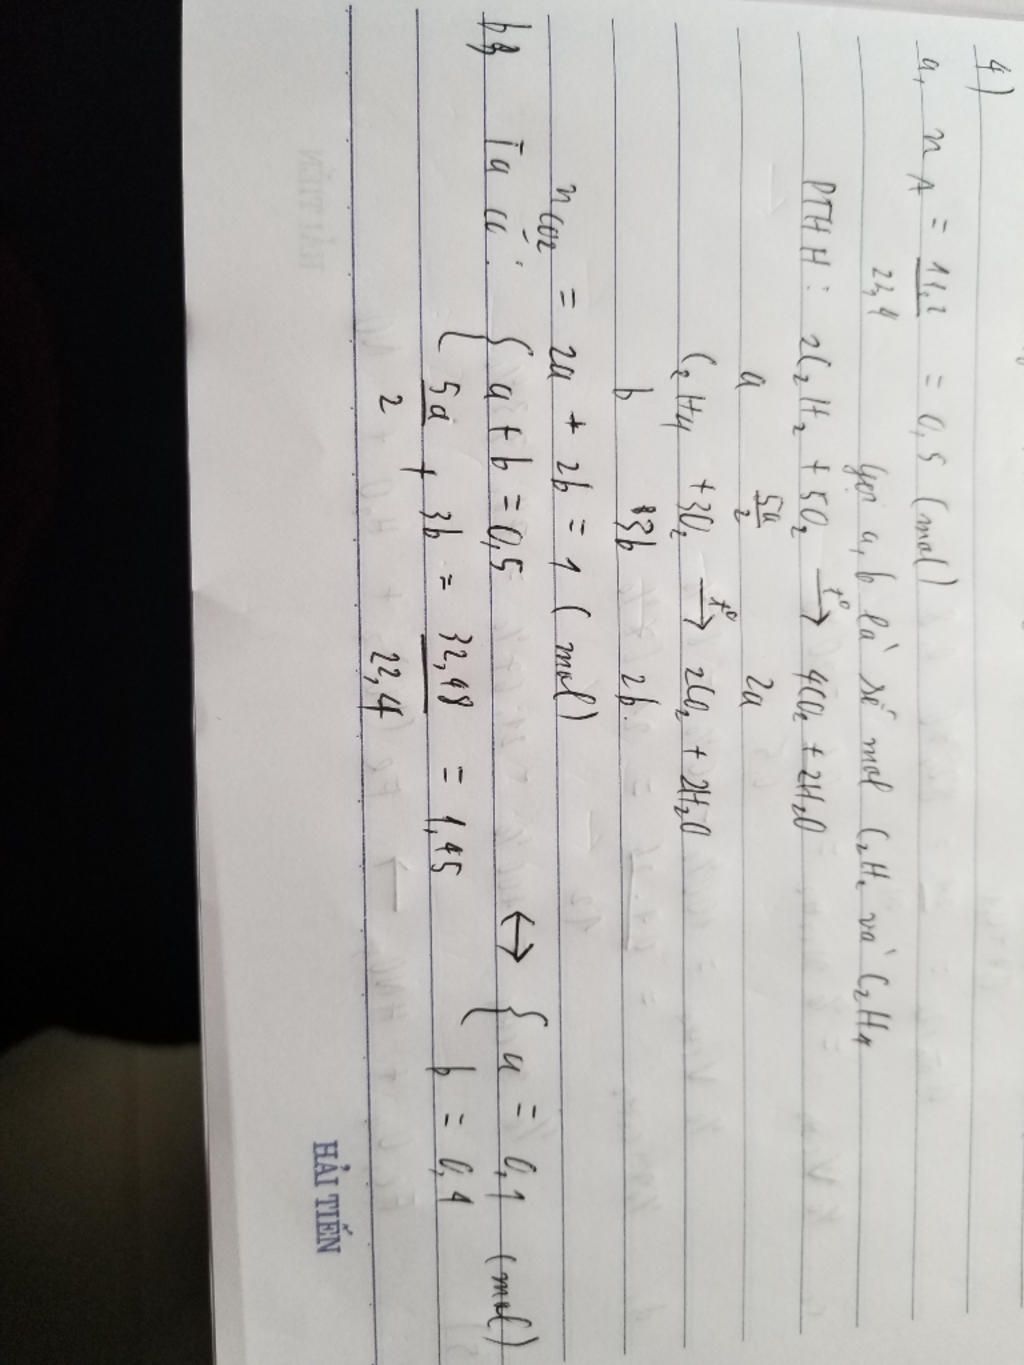 4)
a, n_A = 11,2 / 22,4 = 0,5 (mol)
gọi a, b là số mol C₂H₂ và C₂H₄
PTHH: 2C₂H₂ + 5O₂ —t°→ 4CO₂ + 2H₂O
a 5a/2 2a
C₂H₄ + 3O₂ —t°→ 2CO₂ + 2H₂O
b 3b 2b.
n_CO2 = 2a + 2b = 1 (mol)
b, Ta có: { a + b = 0,5 ↔ { a = 0,1 (mol)
{ 5a/2 + 3b = 32,48 / 22,4 = 1,45 b = 0,4
HẢI TIẾN